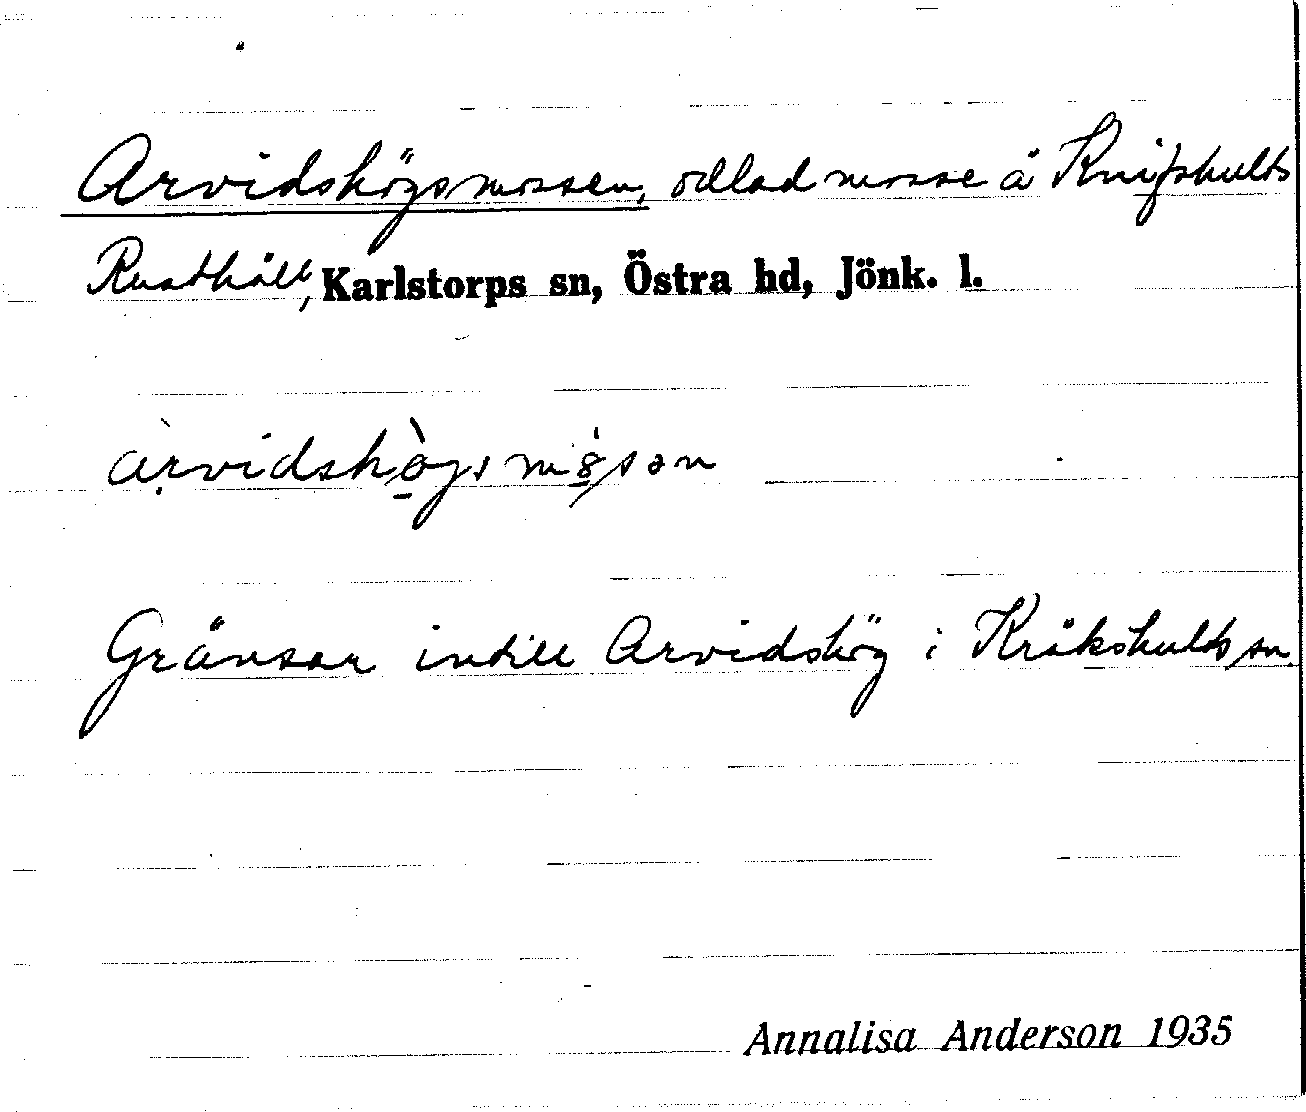 Arvidshögsmossen, odlad mosse å Knifshults
Rusthåll, Karlstorps sn, Östra hd, Jönk. l.
Gränsar intill Arvidshög i Kråkshults sn
Annalisa Anderson 1935